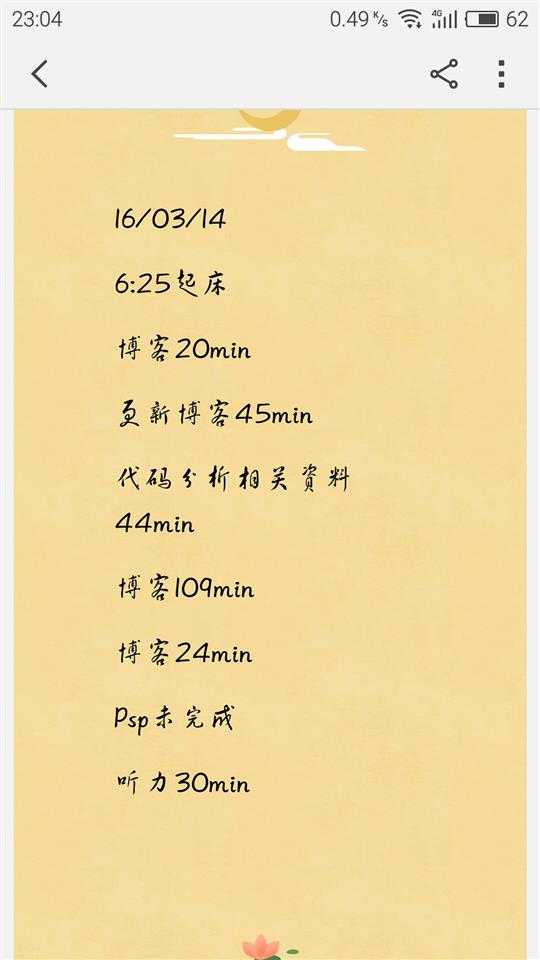 23:04
0.49 K/s 4G 62
16/03/14
6:25起床
博客20min
更新博客45min
代码分析相关資料
44min
博客109min
博客24min
Psp未完成
听力30min